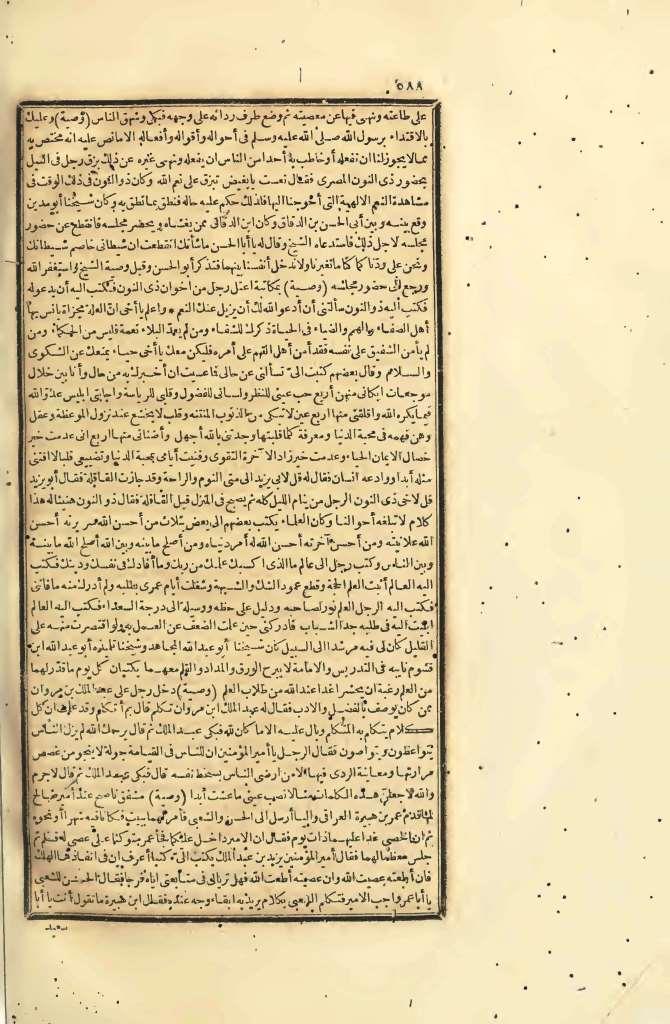 ٥٨٨
على طاعته ونهى فيها عن معصيته ثم وضع طرف ردائه على وجهه فبكى وشهق الناس (وصية) وعليك
بالاقتداء برسول الله صلى الله عليه وسلم فى أحواله وأقواله وأفعاله الامانص عليه انه مختص به
ممالا يجوز لنا ان نفعله أو خاطب به أحدا من الناس ان يفعله ونهى غيره عن ذلك بزق رجل فى النيل
بحضور ذى النون المصرى فقال تعست يا بغيض تبزق على نعم الله وكان ذو النون فى ذلك الوقت فى
مشاهدة النعم الالهية التى أحوجنا اليها فلذلك حكم عليه حاله فنطق بما نطق به وكان شيخنا أبو مدين
وقع بينه وبين أبى الحسن بن الدقاق وكان ابن الدقاق ممن يغشاه ويحضر مجلسه فانقطع عن حضور
مجلسه لاجل ذلك فاستدعاه الشيخ وقال له يا أبا الحسن ما شأنك انقطعت ان شيطانى خاصم شيطانك
ونحن على ودنا كما كنا ما تغيرنا ولا ندخل أنفسنا بينهما فتذكر أبو الحسن وقبل وصية الشيخ واستغفر الله
ورجع الى حضور مجلسه (وصية) بمكاتبة اعتل رجل من اخوان ذى النون فكتب اليه أن يدعو له
فكتب اليه ذو النون سألتنى أن أدعو الله لك أن يزيل عنك النعم * واعلم يا أخى ان العلة مجزاة يأنس بها
أهل الصفاء والهمم والضياء فى الحياة ذكرك للشفاء ومن لم يعد البلاء نعمة فليس من الحكماء ومن
لم يأمن الشفيق على نفسه فقد أمن أهل التهم على أمره فليكن معك يا أخى حياء يمنعك عن الشكوى
والسلام وقال بعضهم كتبت الى تسألنى عن حالى فما عسيت ان أخبرك به من حال وأنا بين خلال
موجعات أبكانى منهن أربع حب عينى للنظر ولسانى للفضول وقلبى للرياسة واجابتى ابليس عدو الله
فيما يكره الله وأقلقنى منها أربع عين لا تبكى من الذنوب المنتنة وقلب لا يخشع عند نزول الموعظة وعقل
وهن فهمه فى محبة الدنيا ومعرفة كلما قلبتها وجدتنى بالله أجهل وأضنانى منها أربع انى عدمت خير
خصال الايمان الحياء وعدمت خير زاد الآخرة التقوى وفنيت أيامى بمحبة الدنيا وتضييعى قلبا لا اقتنى
مثله أبدا ووادعه انسان فقال له قل لابى يزيد الى متى النوم والراحة وقد جازت القافلة فقال أبو يزيد
قل لاخى ذى النون الرجل من ينام الليل كله ثم يصبح فى المنزل قبل القافلة فقال ذو النون هنيئا له هذا
كلام لا تبلغه أحوالنا وكان العلماء يكتب بعضهم الى بعض بثلاث من أحسن الله سريرته أحسن
الله علانيته ومن أحسن آخرته أحسن الله له أمر دنياه ومن أصلح ما بينه وبين الله أصلح الله ما بينه
وبين الناس وكتب رجل الى عالم ما الذى اكسبك علمك من ربك وما أفادك فى نفسك ودينك فكتب
اليه العالم أثبت العلم الحجة وقطع عمود الشك والشبهة وشغلت أيام عمرى بطلبه ولم أدرك منه ما فاتنى
فكتب اليه الرجل العلم نور لصاحبه ودليل على حظه ووسيلة الى درجة السعداء فكتب اليه العالم
أبليت اليه فى طلبه جد الشباب فأدركنى حين علمت الضعف عن العمل به ولو اقتصرت منه على
القليل كان لى فيه مرشد الى السبيل كان شيخنا أبو عبد الله المجاهد وشيخنا تلميذه أبو عبد الله ابن
قشوم نايبه فى التدريس والامامة لا يبرح الورق والمداد والقلم معهما يكتبان كل يوم ما قدر لهما
من العلم رغبة ان يحشر اغدا عند الله من طلاب العلم (وصية) دخل رجل على عبد الملك بن مروان
ممن كان يوصف بالفضل والادب فقال له عبد الملك ابن مروان تكلم قال بم أتكلم وقد علمت ان كل
كلام يتكلم به المتكلم وبال عليه الا ما كان لله فبكى عبد الملك ثم قال يرحمك الله لم يزل الناس
يتواعظون ويتواصون فقال الرجل يا أمير المؤمنين ان للناس فى القيامة جولة لا ينجو من غصص
مرارتها ومعاينة الردى فيها الا من ارضى الناس بسخط نفسه قال فبكى عبد الملك ثم قال لا جرم
والله لاجعلن هذه الكلمات مثالا نصب عينى ما عشت أبدا (وصية) مشفق ناصح عند أمير صالح
لما قدم عمر بن هبيرة العراق واليا أرسل الى الحسن والشعبى فأمر لهما ببيت فكانا فيه شهرا أو نحوه
ثم ان الخصى غدا عليهما ذات يوم فقال ان الامير داخل عليكما فجاء عمر متوكئا على عصى له فسلم ثم
جلس معظما لهما فقال أمير المؤمنين يزيد بن عبد الملك يكتب الى كتبا أعرف ان فى انفاذها الهلك
فان أطعته عصيت الله وان عصيته أطعت الله فهل تريا لى فى متابعتى اياه فرجا فقال الحسن للشعبى
يا أبا عمرو أجب الامير فتكلم الشعبى بكلام يريد به ابقاء وجه عنده فقال ابن هبيرة ما تقول أنت يا أبا
سعيد